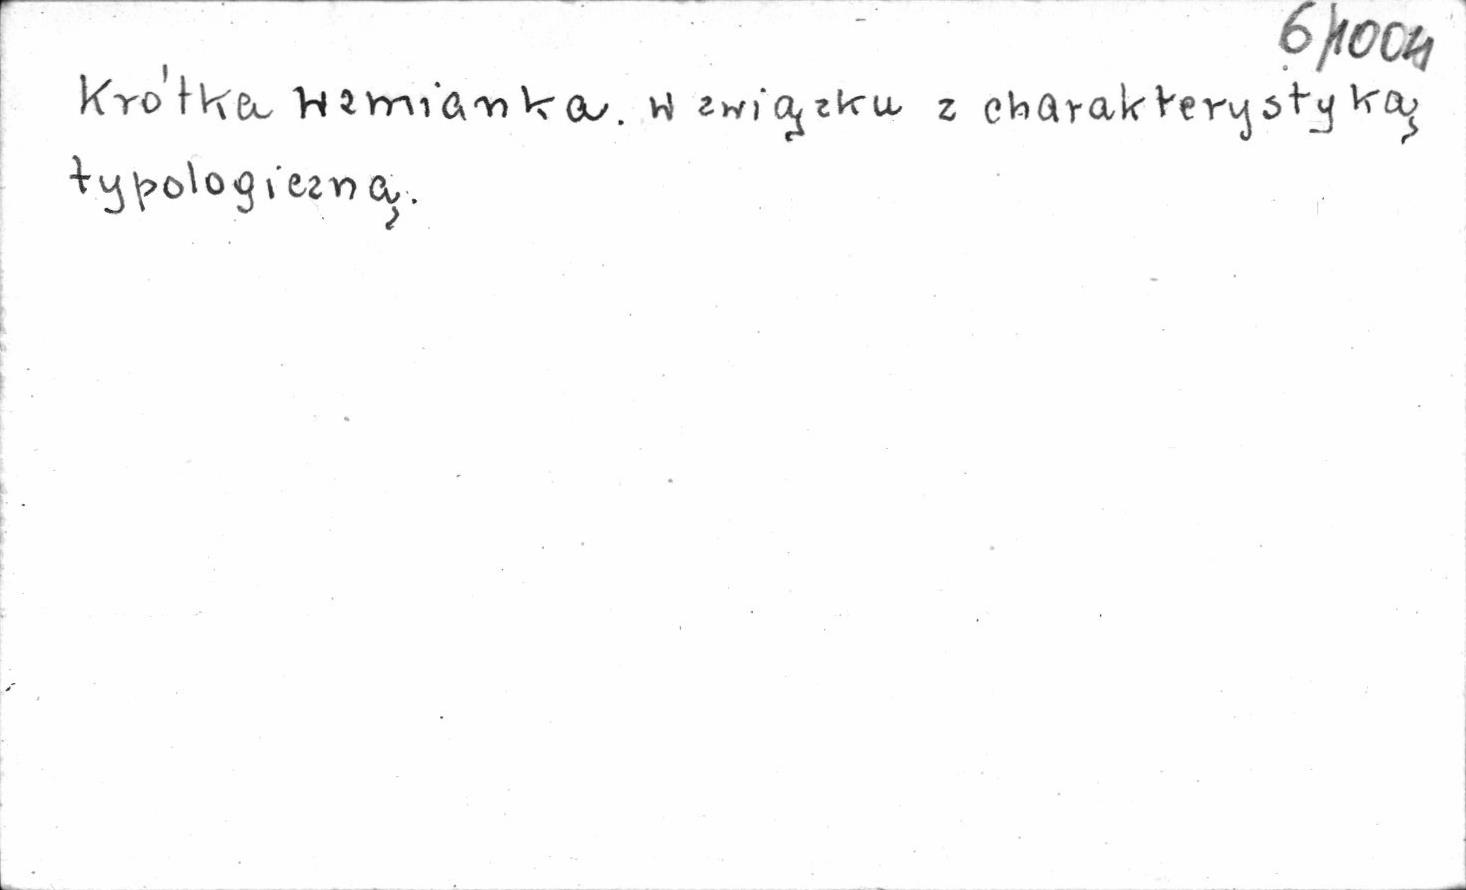 6/1004
Krótka wzmianka. w związku z charakterystyką
typologiczną.